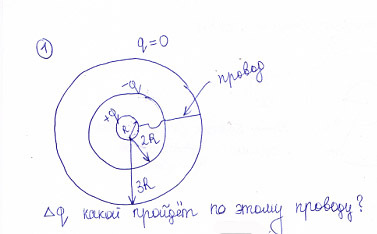 1 q=0
провод
-q
+q
R 2R
3R
Δq какой пройдёт по этому проводу?